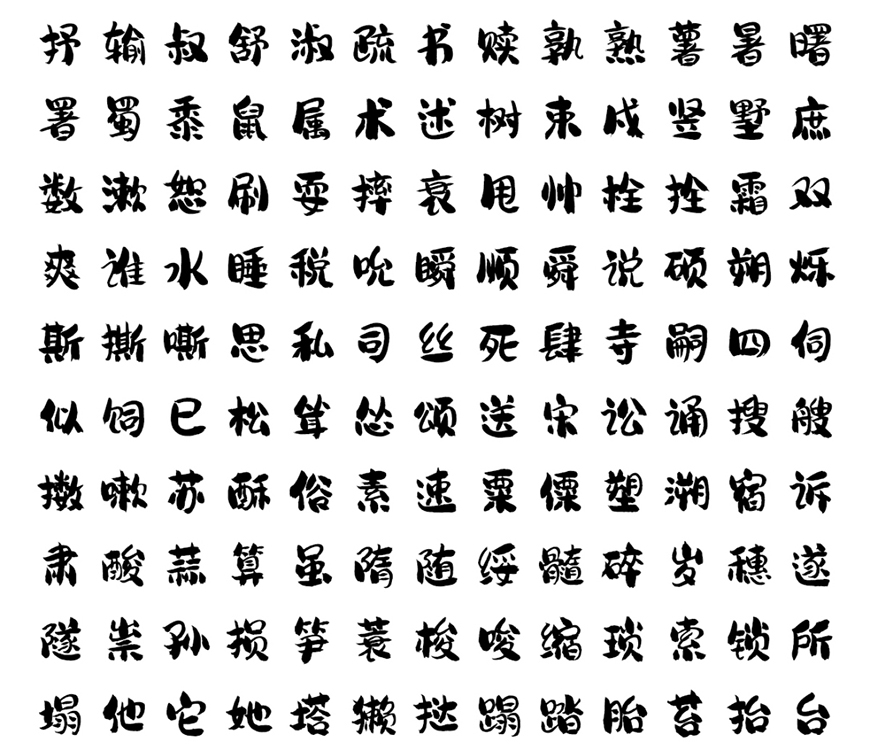 抒输叔舒淑疏书赎孰熟薯暑曙
署蜀黍鼠属术述树束戍竖墅庶
数漱恕刷耍摔衰甩帅栓拴霜双
爽谁水睡税吮瞬顺舜说硕朔烁
斯撕嘶思私司丝死肆寺嗣四伺
似饲巳松耸怂颂送宋讼诵搜艘
擞嗽苏酥俗素速粟僳塑溯宿诉
肃酸蒜算虽隋随绥髓碎岁穗遂
隧祟孙损笋蓑梭唆缩琐索锁所
塌他它她塔獭挞蹋踏胎苔抬台